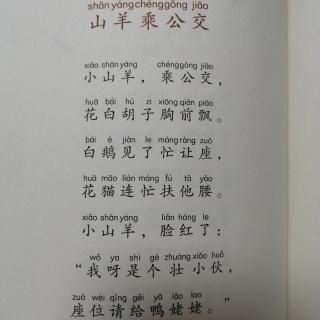 shān yáng chéng gōng jiāo
山羊乘公交
xiǎo shān yáng chéng gōng jiāo
小山羊，乘公交，
huā bái hú zi xiōng qián piāo
花白胡子胸前飘。
bái é jiàn le máng ràng zuò
白鹅见了忙让座，
huā māo lián máng fú tā yāo
花猫连忙扶他腰。
xiǎo shān yáng liǎn hóng le
小山羊，脸红了：
wǒ ya shì gè zhuàng xiǎo huǒ
“我呀是个壮小伙，
zuò wèi qǐng gěi yā lǎo lao
座位请给鸭姥姥。”